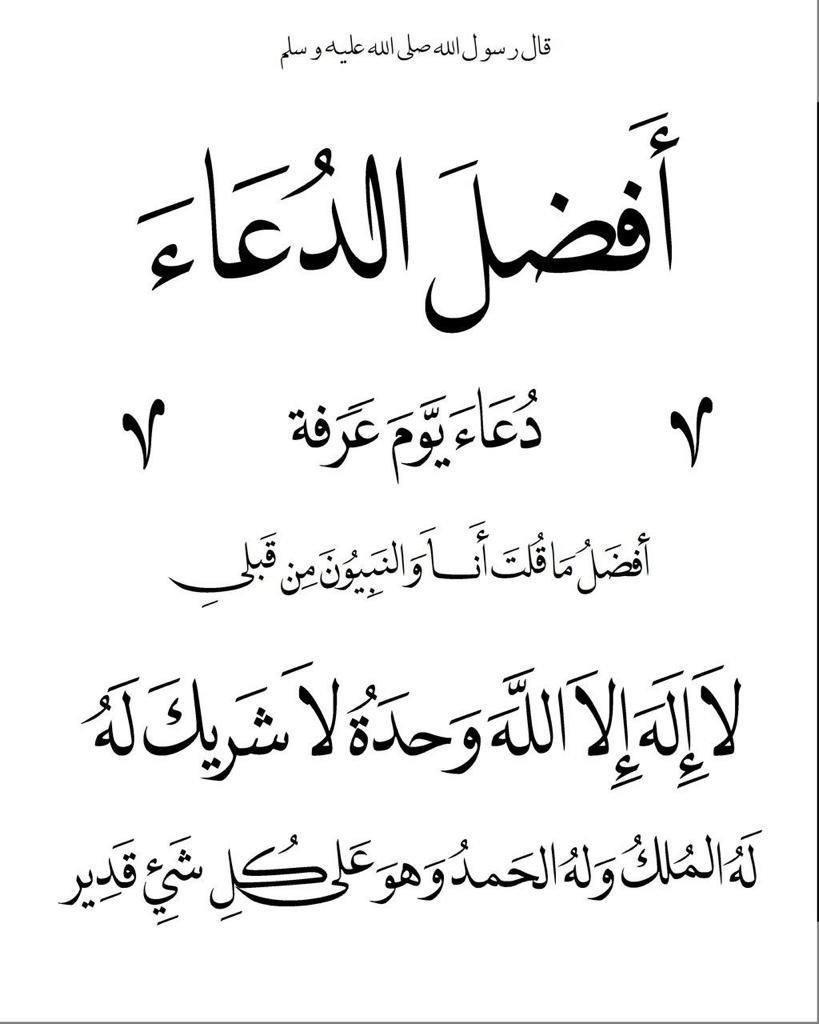 قال رسول الله صلى الله عليه و سلم
أَفضلَ الدُعَاءَ
دُعَاءَ يَّومَ عَرَفة
أفضَلُ مَا قُلتَ أَنـاَ وَالنَبِيُونَ مِن قَبلىِ
لاَ إِلَهَ إِلاَ اللَّهَ وَحدَةُ لاَ شَريكَ لَهُ
لَهُ المُلكُ وَلهُ الحَمدُ وَهوَ عَلى كُلِ شَئٍ قَدِير